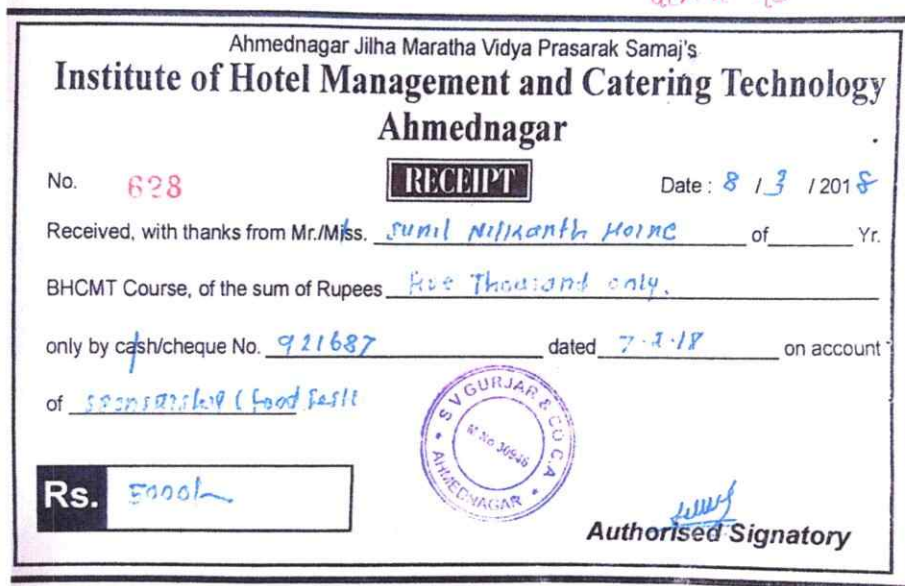 Ahmednagar Jilha Maratha Vidya Prasarak Samaj's
Institute of Hotel Management and Catering Technology
Ahmednagar
No. 628 RECEIPT Date : 8 / 3 / 2018
Received, with thanks from Mr./Miss. Sunil Nilkanth of Yr.
BHCMT Course, of the sum of Rupees Five Thousand only.
only by cash/cheque No. 921687 dated 7-2-18 on account
of sponsorship (food
S V GURJAR & CO C.A
M No 30946
AHMEDNAGAR
Rs. 5000/-
Authorised Signatory